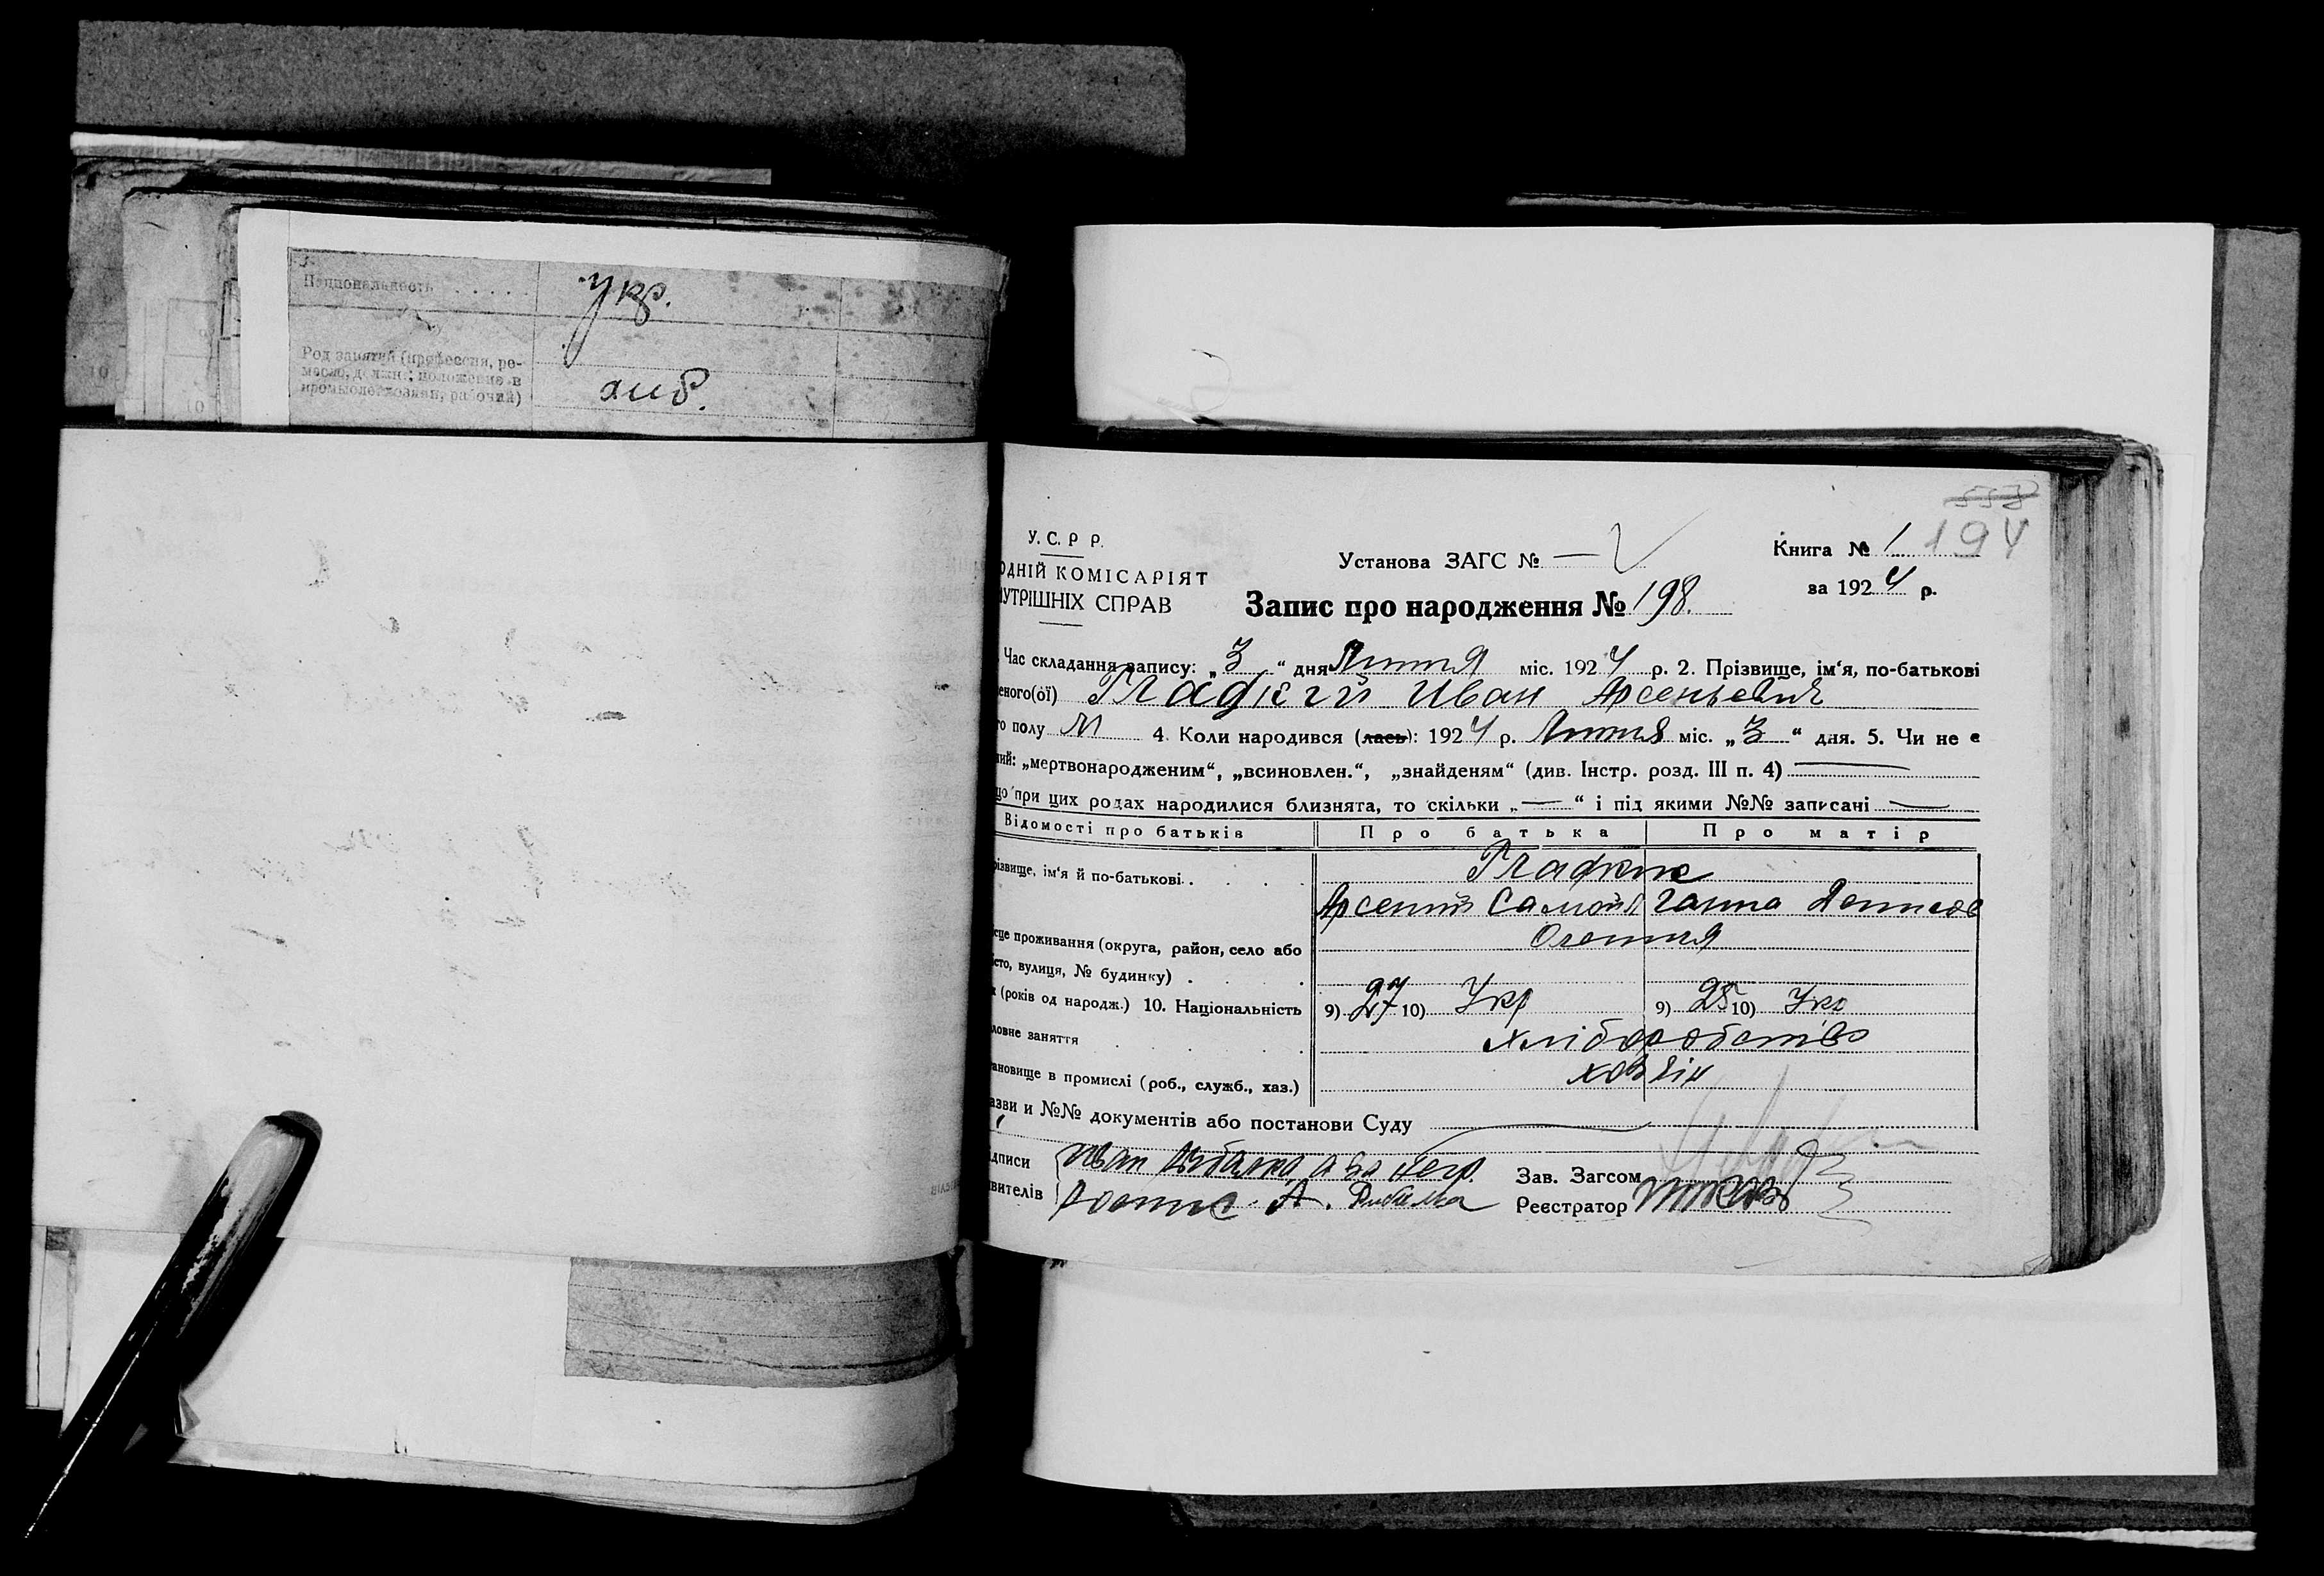 Национальность . . . . . укр.
Род занятий (профессия, ре-
месло, должн.; положение в
промысле: хозяин, рабочий) хлиб.
У. С. Р. Р.
ОДНІЙ КОМІСАРІЯТ
НУТРІШНІХ СПРАВ
Установа ЗАГС № —
Книга № 1
за 1924 р.
558
194
Запис про народження № 198.
Час складання запису: „3“ дня Липня міс. 1924 р. 2. Прізвище, ім‘я, по-батькові
еного(ої) Гладкий Иван Арсеньевич
го полу М 4. Коли народився (лась): 1924 р. Липня міс. „3“ дня. 5. Чи не є
ний: „мертвонародженим“, „всиновлен.“, „знайденям“ (див. Інстр. розд. III п. 4) —
що при цих родах народилися близнята, то скільки „—“ і під якими №№ записані —
Відомості про батьків Про батька Про матір
різвище, ім‘я й по-батькові . . . . Гладкие
Арсений Самойл Ганна Денисов
сце проживання (округа, район, село або
сто, вулиця, № будинку) . .
к (років од народж.) 10. Національність 9) 27 10) Укр 9) 25 10) Укр
ловне заняття . . . . хліборобство
ановище в промислі (роб., служб., хаз.) хозяін
азви и №№ документів або постанови Суду —
ідписи Иван Рибалка, а за негр.
явителів А. Рибалка
Зав. Загсом
Реєстратор